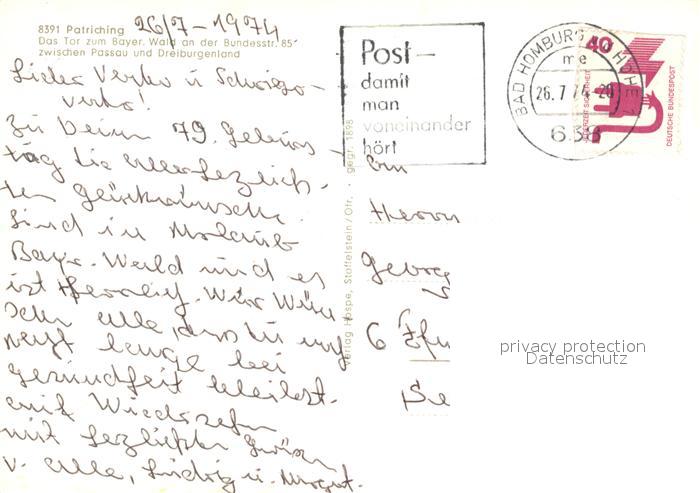 8391 Patriching 26/7-1974
Das Tor zum Bayer. Wald an der Bundesstr. 85
zwischen Passau und Dreiburgenland
Lieber Vater u Schwiege-
vater!
Zu Deinem 79. Geburts
tag die allerherzlich-
sten Glückwünsche.
Sind in Urlaub
Bayr. Wald und es
ist herrlich. Wir Wün
schen alle, dass Du
lange bei
gesundheit bleibst.
auf Wiedersehn
mit herzlichsten Grüssen
v. alle, Ludwig u. Margot.
Verlag Hospe, Staffelstein/Ofr. gegr. 1898
Post-
damit
man
voneinander
hört
BAD HOMBURG V D HÖHE 1
me
26.7.74-20
638
40
JEDERZEIT SICHERHEIT
DEUTSCHE BUNDESPOST
An
Herrn
Georg
6
privacy protection
Datenschutz